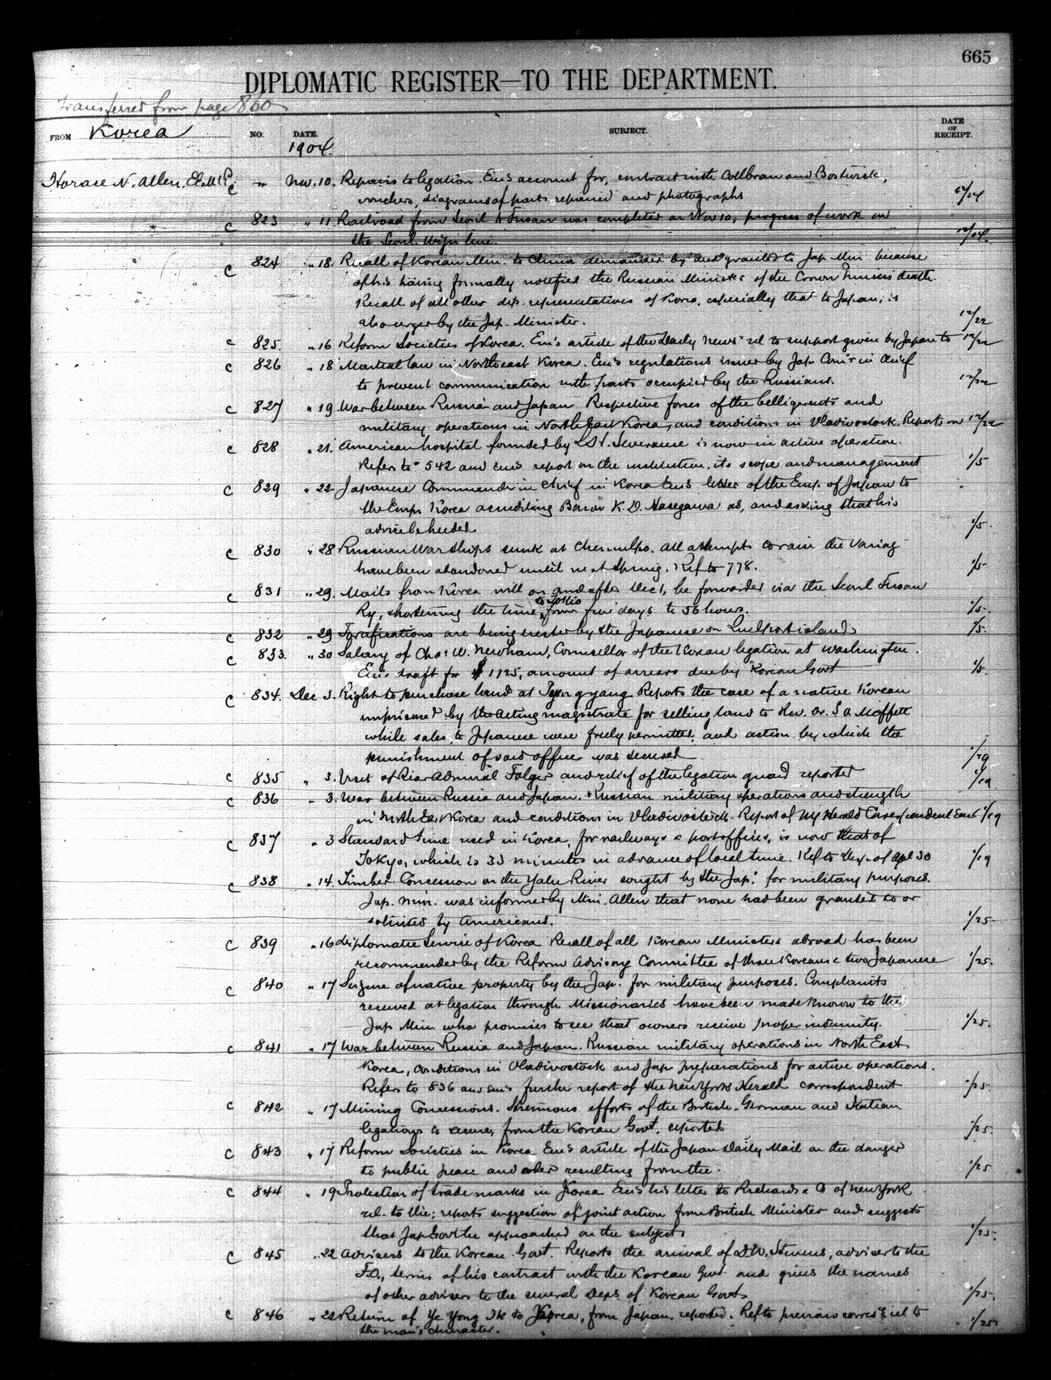 665
DIPLOMATIC REGISTER—TO THE DEPARTMENT.
Transferred from page 860
FROM Korea NO. DATE. SUBJECT. DATE OF RECEIPT.
1904.
Horace N. Allen, E.E. & M.P. c " Nov. 10. Repairs to legation. Enc's account for, contract with Collbran and Bostwick,
vouchers, diagrams of parts repaired and photographs 12/14
c 823 " 11 Railroad from Seoul to Fusan was completed on Nov 10, progress of work on
the Seoul, Wiju line. 12/14.
c 824 " 18. Recall of Korean Min. to China demanded by and granted to Jap. Min. because
of his having formally notified the Russian Minister of the Crown Princess' death.
Recall of all other dip. representatives of Korea, especially that to Japan, is
also urged by the Jap. Minister. 12/22
c 825. " 16 Reform Societies of Korea. Enc's article of the "Daily News" rel to support given by Japan to 12/22
c 826 " 18 Martial law in Northeast Korea. Enc's regulations issued by Jap. Com'r in Chief
to prevent communication with parts occupied by the Russians. 12/22
c 827 " 19. War between Russia and Japan. Respective forces of the belligerents and
military operations in North East Korea, and conditions in Vladivostock. Reports on 12/22
c 828 " 21. American hospital founded by L. H. Severance is now in active operation.
Refers to 542 and enc's report on the institution, its scope and management 1/5
c 829 " 22. Japanese Commander in Chief in Korea Enc's letter of the Emp. of Japan to
the Emp. Korea accrediting Baron K. D. Hasegawa as, and asking that his
advice be heeded 1/5.
c 830 " 28 Russian War Ships sunk at Chemulpo. All attempts to raise the Variag
have been abandoned until next spring. Ref to 778. 1/5
c 831 " 29. Mails from Korea will on and after Dec 1, be forwarded via the Seoul Fusan
Ry, shortening the time to Tokio from five days to 56 hours. 1/5.
c 832 " 29 Fortifications are being erected by the Japanese on island 1/5.
c 833. " 30 Salary of Chas. W. Needham, Counsellor of the Korean legation at Washington.
Enc's draft for $1725, amount of arrears due by Korean Govt 1/5.
c 834. Dec 3. Right to purchase land at Pyeng yang Reports the case of a native Korean
imprisoned by the acting magistrate for selling land to Rev. Dr. S A Moffett
while sales to Japanese were freely permitted, and action by which the
punishment of said officer was secured 1/19
c 835 " 3. Visit of Rear Admiral Folger and relief of the legation guard reported 1/19
c 836 " 3. War between Russia and Japan. Russian military operations and strength
in North East Korea and conditions in Vladivostock. Report of NY Herald Correspondent Encs 1/19
c 837 " 3 Standard time used in Korea, for railways & post offices, is now that of
Tokyo, which is 33 minutes in advance of local time. Ref to desp. of Apl 30 1/19
c 838 " 14. Timber Concession on the Yalu River sought by the Jap. for military purposes.
Jap. Min. was informed by Min. Allen that none had been granted to or
solicited by Americans. 1/25
c 839 " 16 diplomatic Service of Korea Recall of all Korean Ministers abroad has been
recommended by the Reform Advisory Committee of three Koreans & two Japanese 1/25.
c 840 " 17 Seizure of native property by the Jap. for military purposes. Complaints
received at legation through Missionaries have been made known to the
Jap Min who promises to see that owners receive proper indemnity. 1/25.
c 841 " 17 War between Russia and Japan. Russian military operations in North East
Korea, conditions in Vladivostock and Jap preparations for active operations.
Refers to 836 and enc's further report of the New York Herald correspondent 1/25.
c 842 " 17 Mining Concessions. Strenuous efforts of the British, German and Italian
legations to secure, from the Korean Govt, reported 1/25.
c 843 " 17 Reform Societies in Korea Enc's article of the Japan Daily Mail on the danger
to public peace and order resulting from the. 1/25
c 844 " 19 Protection of trade marks in Korea Enc's his letter to Richards & Co of New York
rel. to the; reports suggestion of joint action from British Minister and suggests
that Jap. Govt be approached on the subject. 1/25.
c 845 " 22 Advisers to the Korean Govt. Reports the arrival of D. W. Stevens, adviser to the
F.O., terms of his contract with the Korean Govt and gives the names
of other advisers to the several Depts. of Korean Govt. 1/25.
c 846 " 22 Return of Ye Yong Ik to Korea, from Japan, reported. Ref to previous corres. rel to
the man's character. 1/25